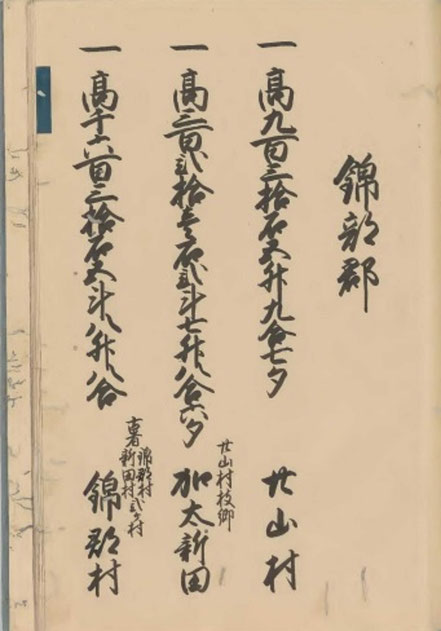 錦部郡
一 高九百三拾石五升九合七夕 廿山村
一 高三百弐拾壱石弐斗七升八合六夕
廿山村枝郷
加太新田
一 高千六百三拾石五斗八升八合
古者 錦郡村 新田村 弐ケ村
錦郡村